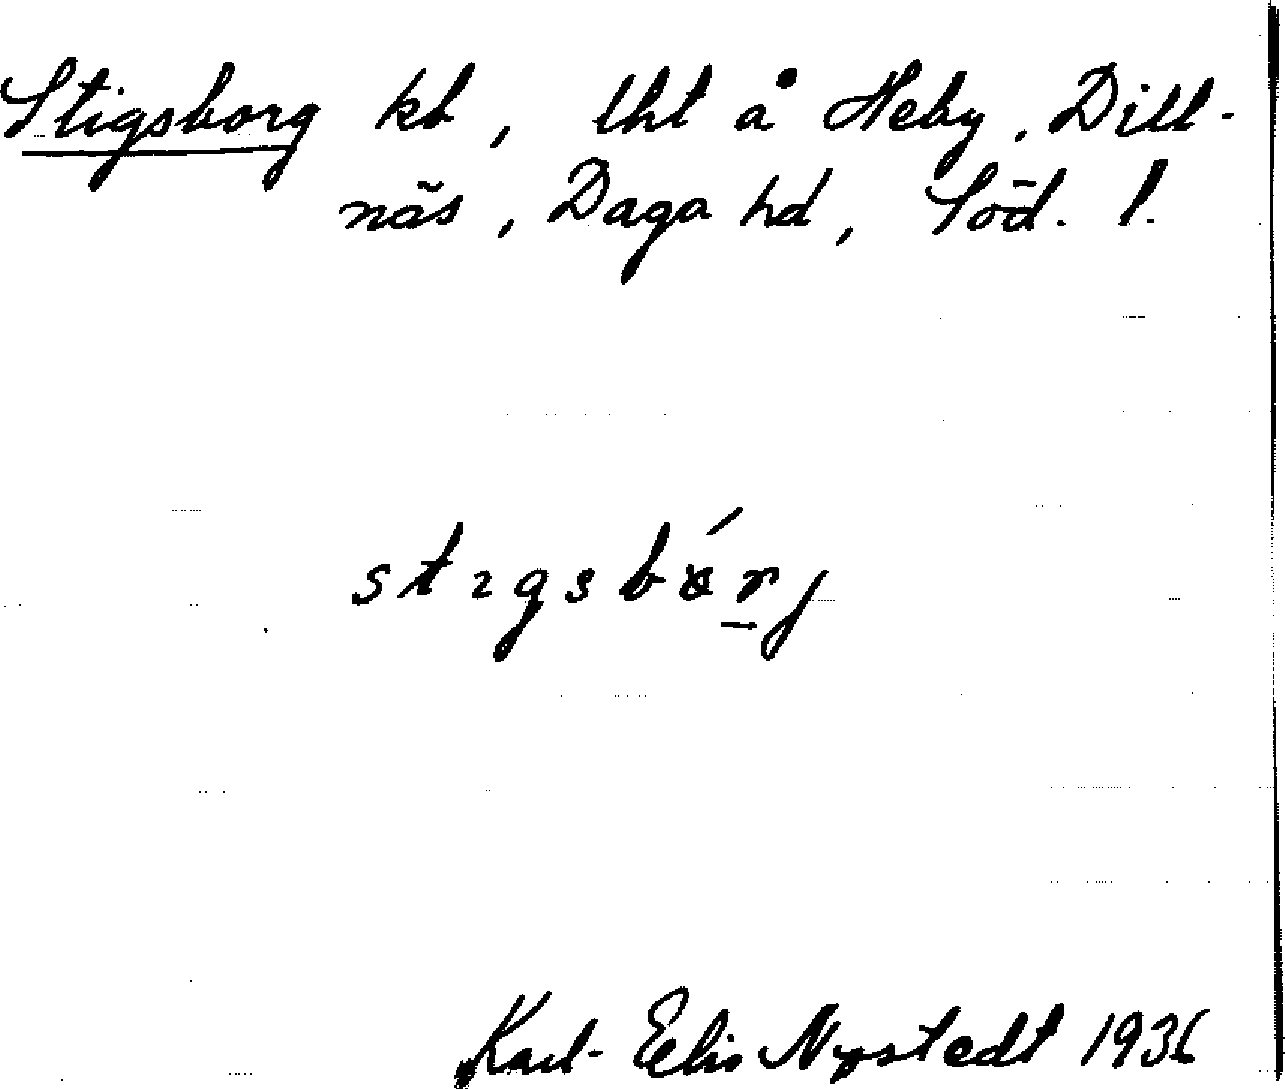 Stigsborg kt, tht å Heby, Dill-
näs, Daga hd, Söd. l.
stɩgsbórj
Karl-Elis Nystedt 1936